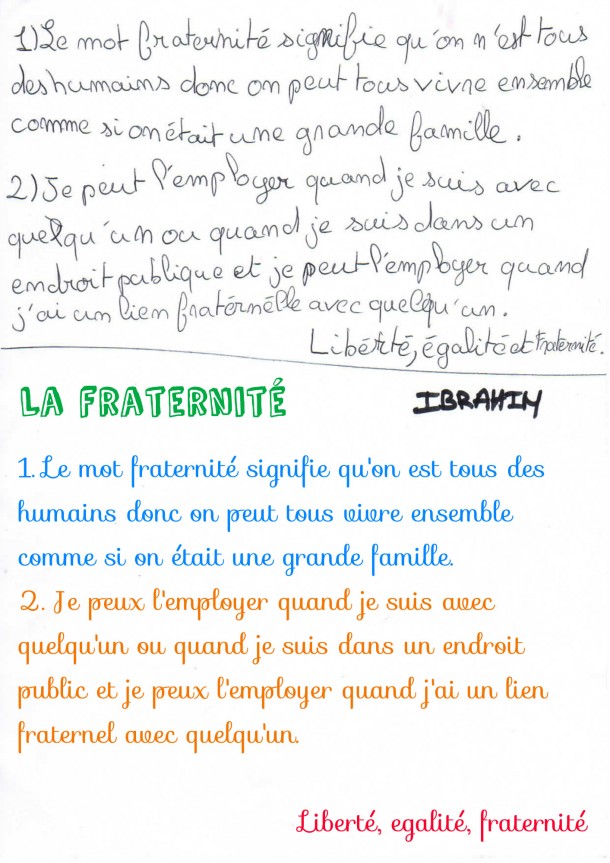 1) Le mot fraternité signifie qu'on n'est tous
des humains donc on peut tous vivre ensemble
comme si on était une grande famille.
2) Je peut l'employer quand je suis avec
quelqu'un ou quand je suis dans un
endroit publique et je peut l'employer quand
j'ai un lien fratérnélle avec quelqu'un.
Libérté, égalité et Fraternité.
LA FRATERNITÉ
IBRAHIM
1. Le mot fraternité signifie qu'on est tous des
humains donc on peut tous vivre ensemble
comme si on était une grande famille.
2. Je peux l'employer quand je suis avec
quelqu'un ou quand je suis dans un endroit
public et je peux l'employer quand j'ai un lien
fraternel avec quelqu'un.
Liberté, egalité, fraternité